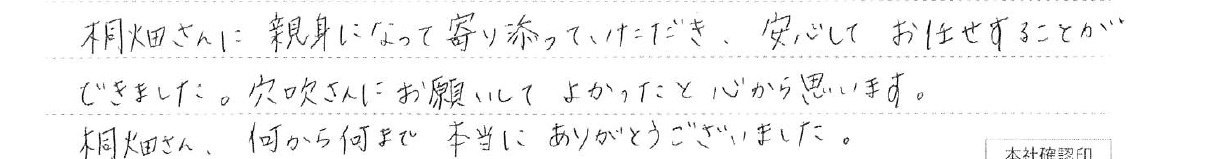 桐畑さんに親身になって寄り添っていただき、安心してお任せすることが
できました。穴吹さんにお願いしてよかったと心から思います。
桐畑さん、何から何まで本当にありがとうございました。
本社確認印